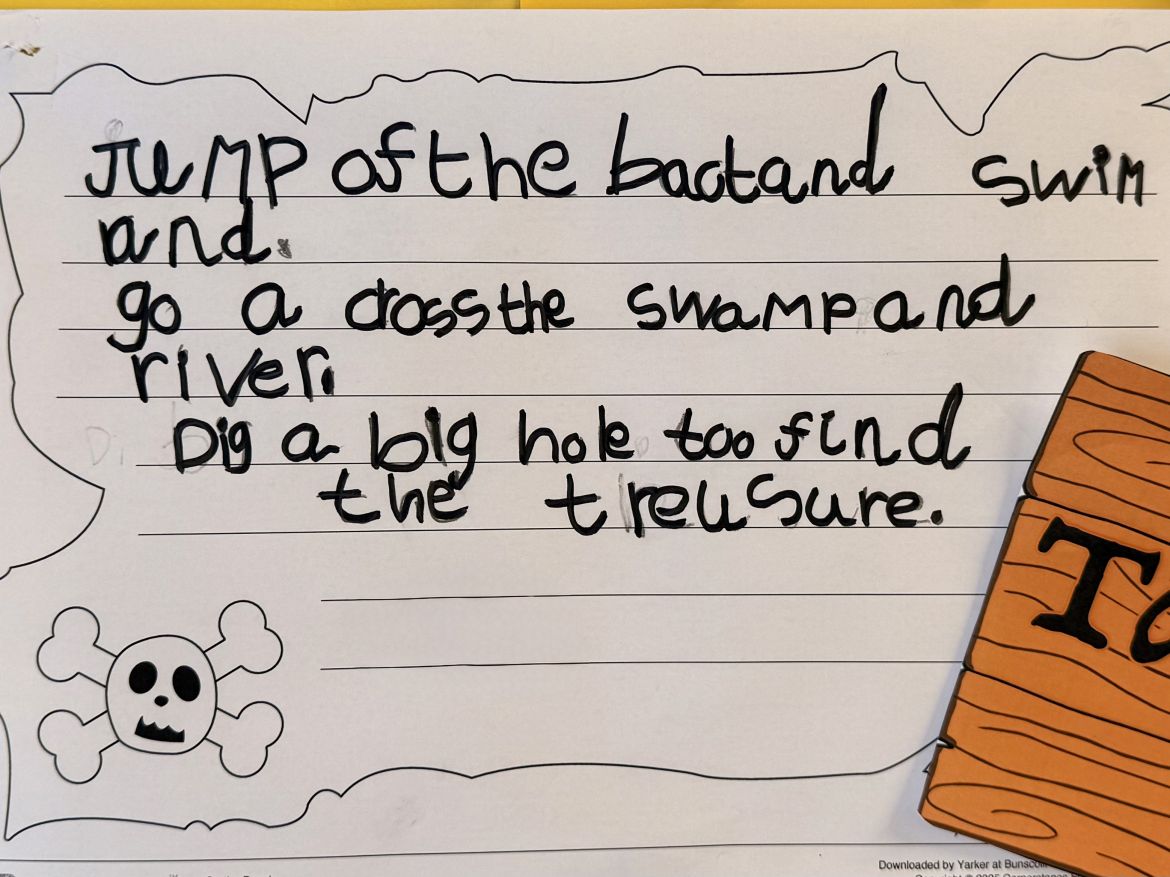 Jump of the bactand swim
and.
go a cross the swamp and
river.
Dig a big hole too find
the treusure.
Downloaded by Yarker at